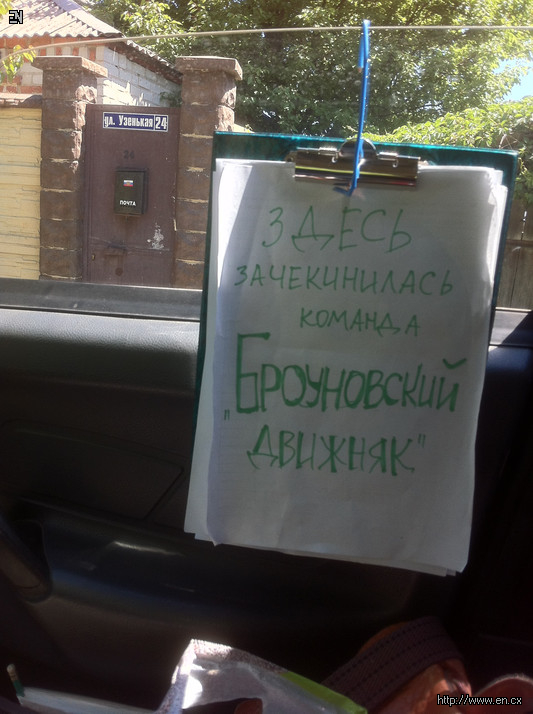 EN
ул. Узенькая 24
24
ПОЧТА
ЗДЕСЬ
ЗАЧЕКИНИЛАСЬ
КОМАНДА
„БРОУНОВСКИЙ
ДВИЖНЯК"
http://www.en.cx